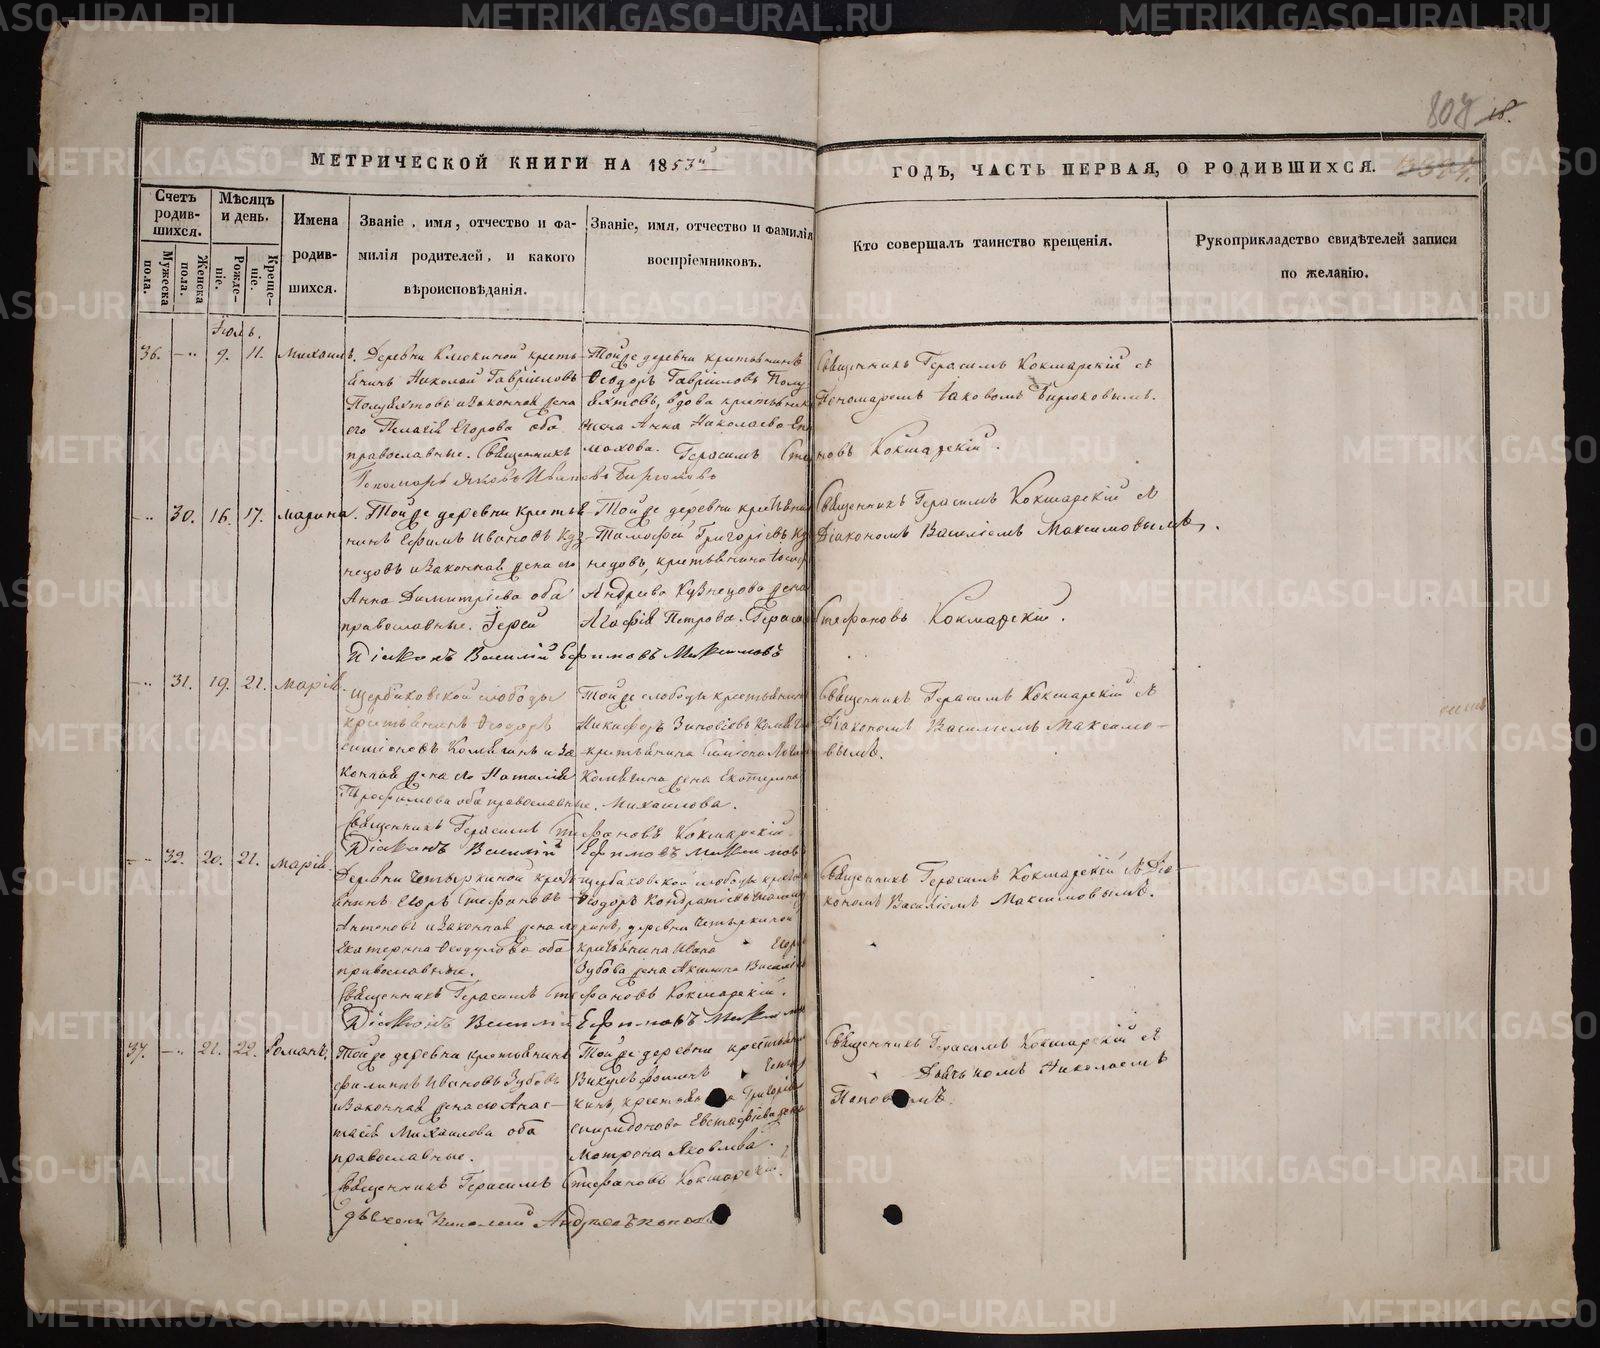 807 18.
МЕТРИЧЕСКОЙ КНИГИ НА 1853й
ГОДЪ, ЧАСТЬ ПЕРВАЯ, О РОДИВШИХСЯ.
Счетъ родив-шихся.
Мужеска пола.
Женска пола.
Мѣсяцъ и день.
Рожде-ніе.
Креще-ніе.
Имена
родив-
шихся.
Званіе, имя, отчество и фа-
милія родителей, и какого
вѣроисповѣданія.
Званіе, имя, отчество и фамилія
воспріемниковъ.
Кто совершалъ таинство крещенія.
Рукоприкладство свидѣтелей записи
по желанію.
Іюль.
36. 9. 11. Михаилъ.
Деревни Клюкиной кресть-
янинъ Николай Гавріиловъ
Полуяхтовъ и законная жена
его Пелагія Егорова оба
православные. Священникъ
Пономарь Яковъ Ивановъ Бирюковъ
Той же деревни крестьянинъ
Ѳеодоръ Гавріиловъ Полу-
яхтовъ, вдова крестьянка
Анна Николаева
Герасимъ
Священникъ Герасимъ Кокшарскій съ
Пономаремъ Іаковомъ Бирюковымъ.
Кокшарскій.
30. 16. 17. Марина.
Той же деревни крестья-
нинъ Ефимъ Ивановъ Куз-
нецовъ и законная жена его
Анна Димитріева оба
православные. Іерей
Діаконъ Василій Ефимовъ Максимовъ
Той же деревни крестьянинъ
Тимофей Григорьевъ Куз-
нецовъ, крестьянина
Андреева Кузнецова жена
Агафія Петрова. Герасимъ
Священникъ Герасимъ Кокшарскій съ
Діакономъ Василіемъ Максимовымъ.
Стефановъ Кокшарскій.
31. 19. 21. Марія.
Щербаковской слободы
крестьянинъ Ѳеодоръ
Симіоновъ Калягинъ и за-
конная жена его Наталія
Трофимова оба православные.
Священникъ Герасимъ Стефановъ Кокшарскій.
Діаконъ Василій Ефимовъ Максимовъ
Той же слободы крестьянинъ
Никифоръ Зиновіевъ
крестьянина Симіона
Калягина жена Екатерина
Михаилова.
Священникъ Герасимъ Кокшарскій съ
Діакономъ Василіемъ Максимо-
вымъ.
32. 20. 21. Марія.
Деревни Чемыркиной кресть-
янинъ Егоръ Стефановъ
Антоновъ и законная жена его
Екатерина Ѳеодулова оба
православные.
Священникъ Герасимъ Стефановъ Кокшарскій.
Діаконъ Василій Ефимовъ Максимовъ
Щербаковской слободы крестьянинъ
Ѳеодоръ Кондратьевъ
деревни Чемыркиной
крестьянина Ивана Егорова
Зубова жена Акилина Василіева
Священникъ Герасимъ Кокшарскій съ Діа-
кономъ Василіемъ Максимовымъ.
37. 21. 22. Романъ.
Той же деревни крестьянинъ
Филиппъ Ивановъ Зубовъ
и законная жена его Анас-
тасія Михаилова оба
православные.
Священникъ Герасимъ Стефановъ Кокшарскій.
Дьячекъ Николай Андреевъ Поповъ
Той же деревни крестьянинъ
Викулъ Фоминъ
Спиридонова Евстафіева жена
Матрона Яковлева.
Священникъ Герасимъ Кокшарскій съ
Дьячкомъ Николаемъ
Поповымъ.
METRIKI.GASO-URAL.RU